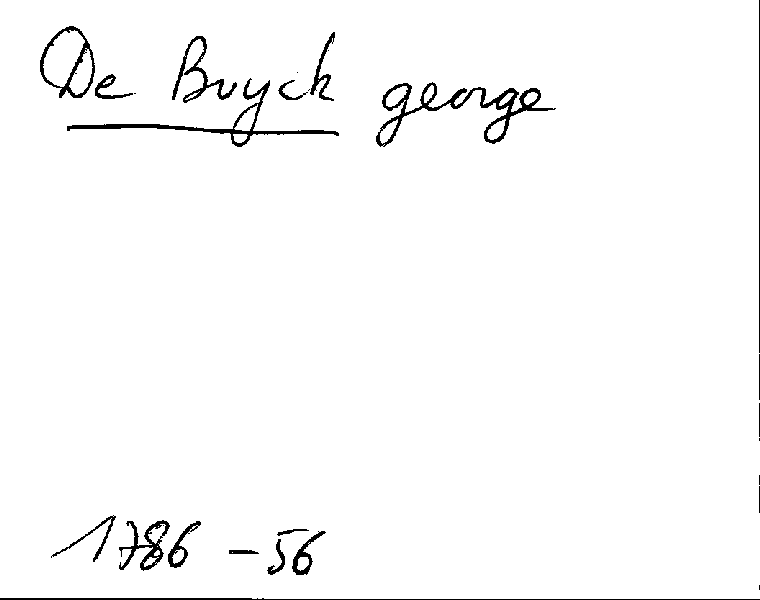 De Buyck george
1786 - 56